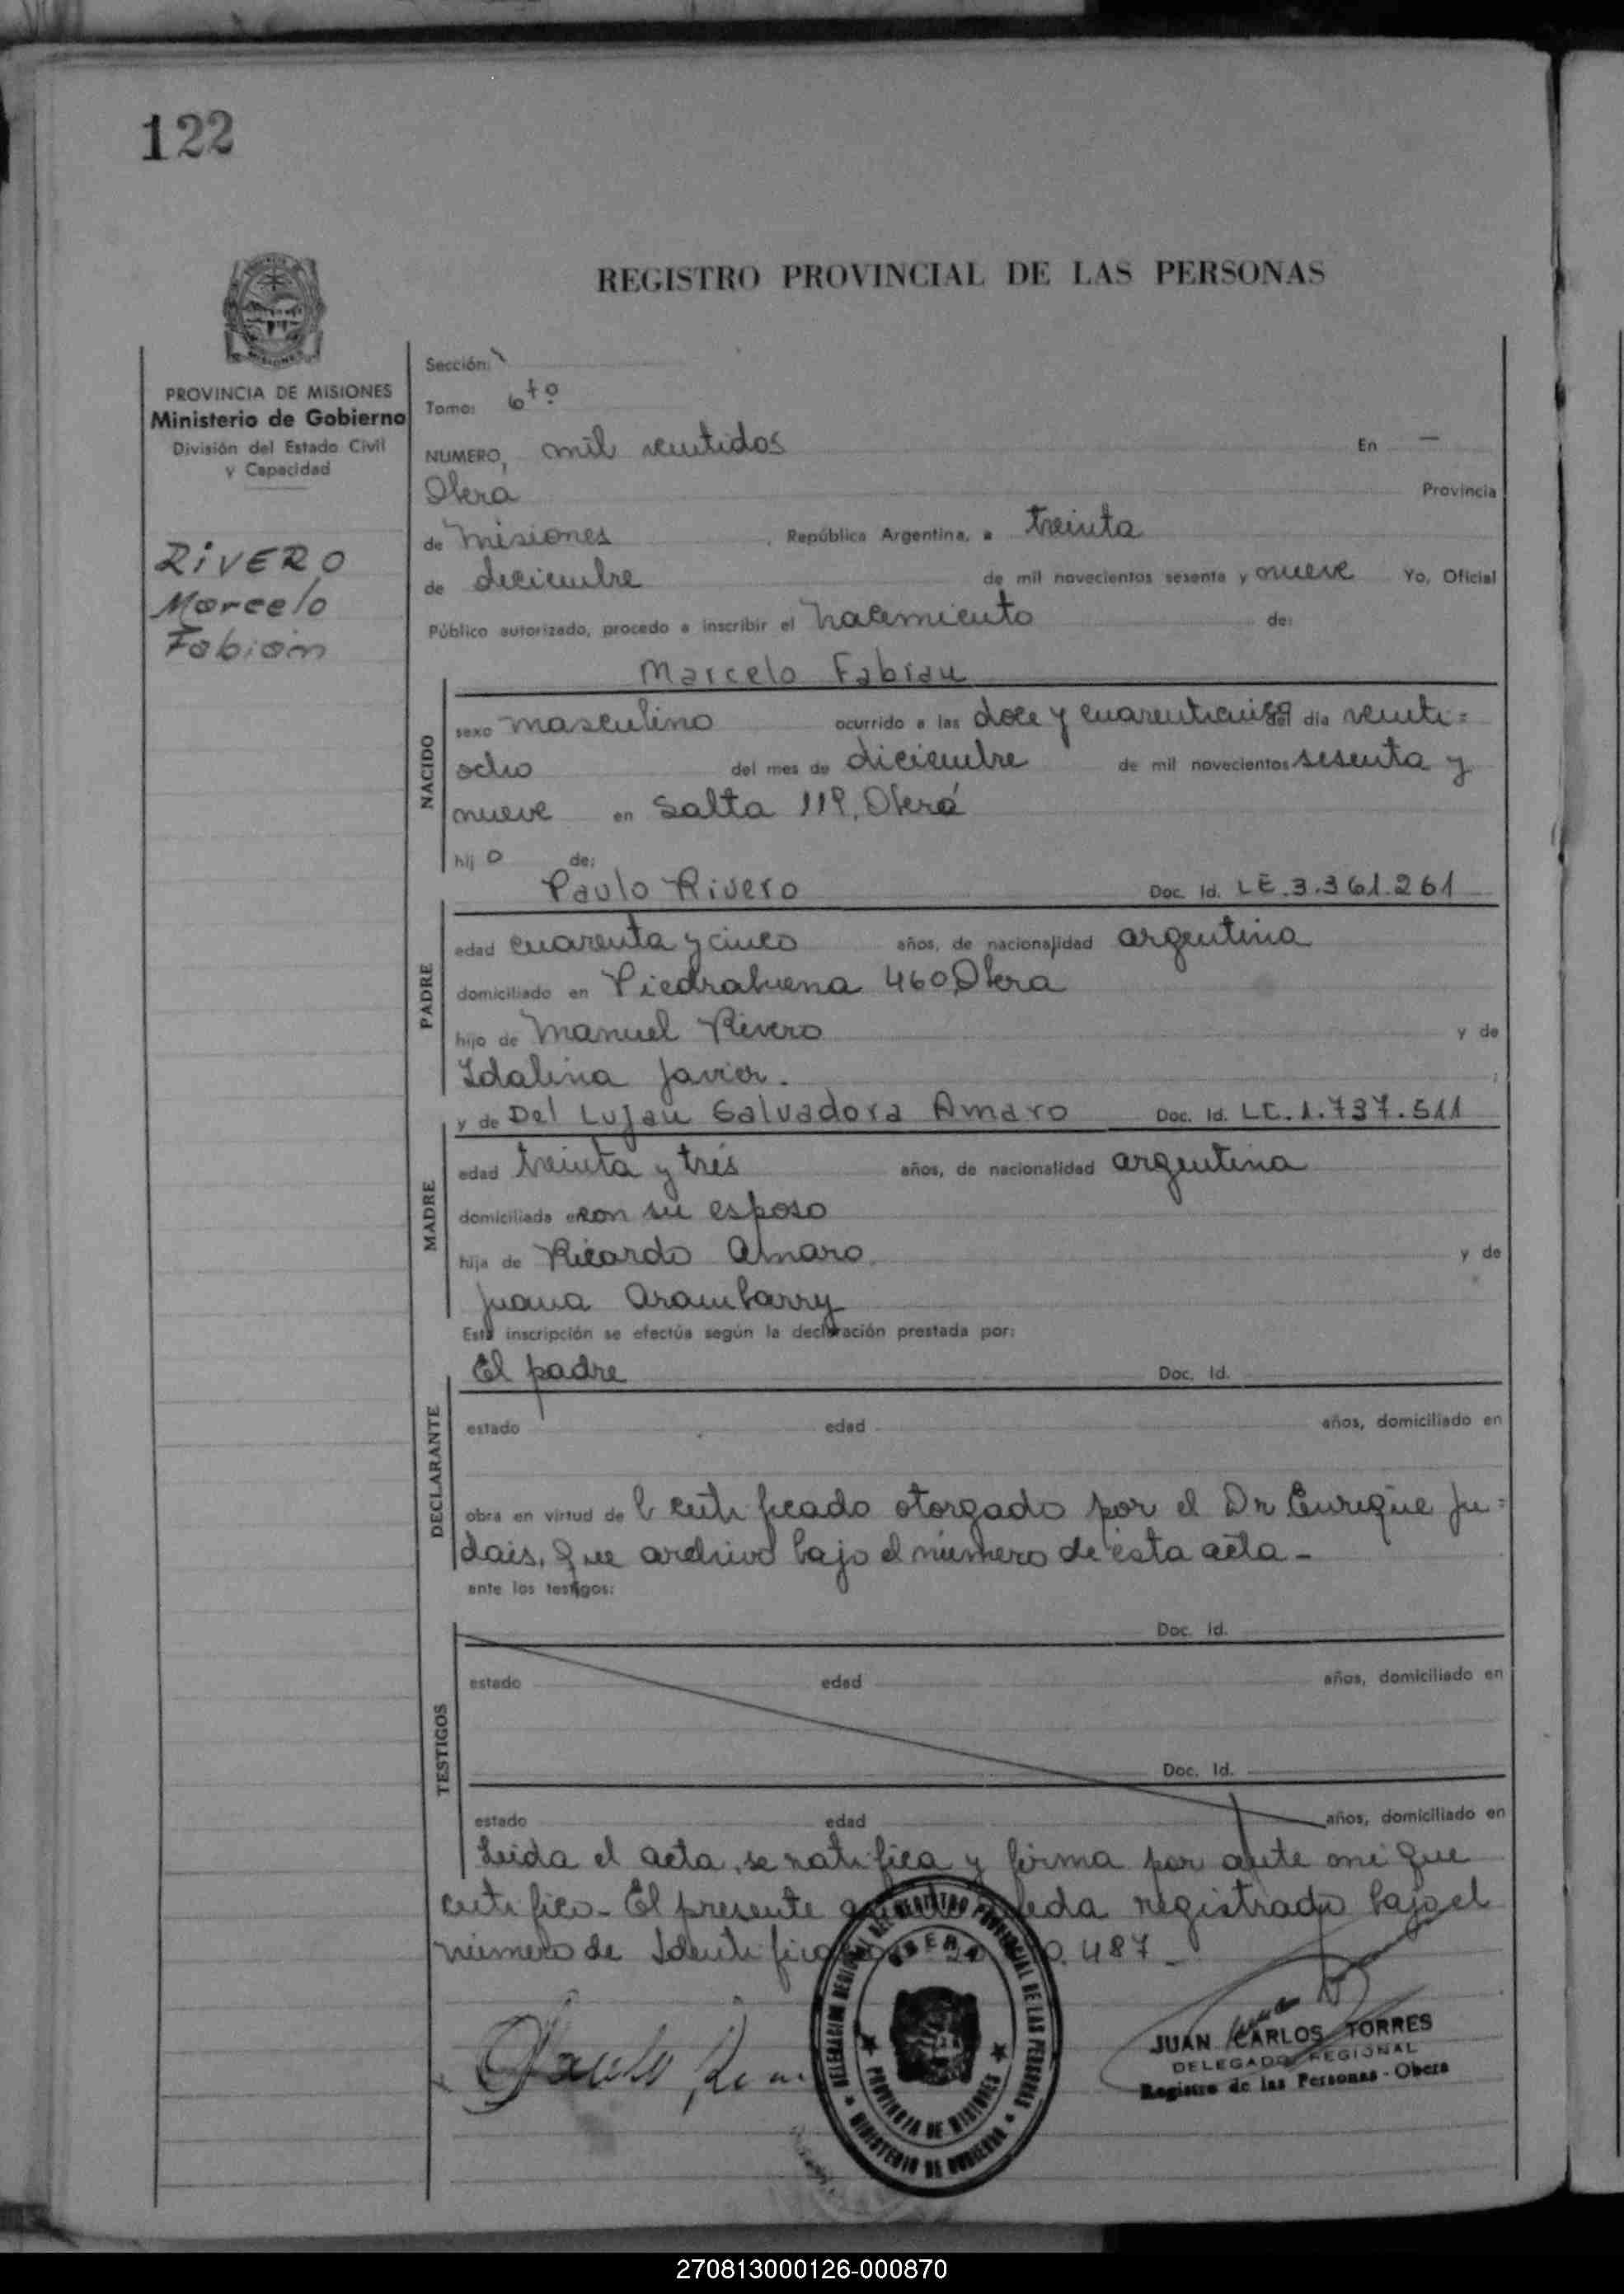 122
REGISTRO PROVINCIAL DE LAS PERSONAS
PROVINCIA DE MISIONES
Ministerio de Gobierno
División del Estado Civil
y Capacidad
RIVERO
Marcelo
Fabián
Sección:
Tomo: 6to
NUMERO, mil veintidos En —
Obera Provincia
de Misiones, República Argentina, a treinta
de diciembre de mil novecientos sesenta y nueve Yo, Oficial
Público autorizado, procedo a inscribir el nacimiento de:
Marcelo Fabian
NACIDO
sexo masculino ocurrido a las doce y cuarenticinco del día veinti=
ocho del mes de diciembre de mil novecientos sesenta y
nueve en Salta 119, Oberá
hij o de:
Paulo Rivero Doc. Id. LE.3.361.261
PADRE
edad cuarenta y cinco años, de nacionalidad argentina
domiciliado en Piedrabuena 460, Obera
hijo de Manuel Rivero y de
Idalina Javier.
y de Del Lujan Salvadora Amaro Doc. Id. LC.1.737.511
MADRE
edad treinta y tres años, de nacionalidad argentina
domiciliada con su esposo
hija de Ricardo Amaro y de
Juana Arambarry
Esta inscripción se efectúa según la declaración prestada por:
El padre Doc. Id.
DECLARANTE
estado edad años, domiciliado en
obra en virtud de certificado otorgado por el Dr Enrique Ju=
dais, que archivo bajo el número de esta acta -
ante los testigos:
Doc. Id.
TESTIGOS
estado edad años, domiciliado en
Doc. Id.
estado edad años, domiciliado en
Leida el acta, se ratifica y firma por ante mi que
certifico - El presente queda registrado bajo el
número de 487 -
DELEGACION REGIONAL DEL REGISTRO PROVINCIAL DE LAS PERSONAS
OBERA
PROVINCIA DE MISIONES
MINISTERIO DE GOBIERNO
JUAN CARLOS TORRES
DELEGADO REGIONAL
Registro de las Personas - Obera
270813000126-000870